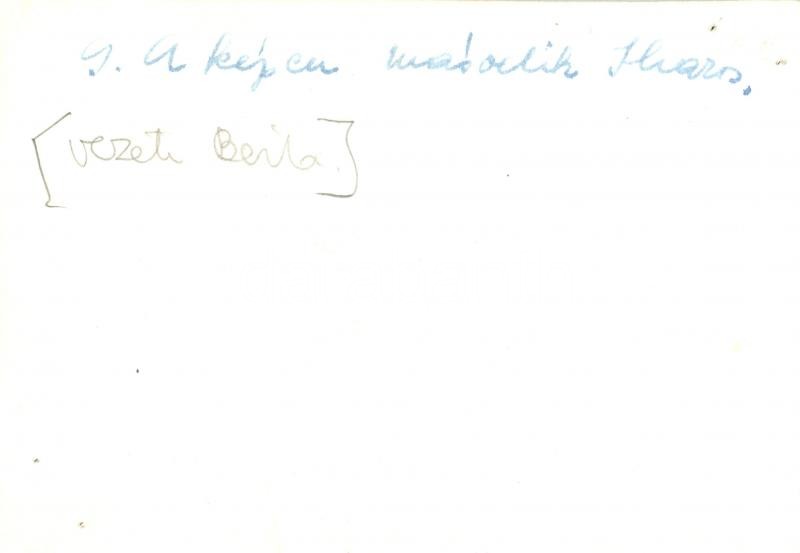 9. A képen második Iharos.
[vezeti Berta.]